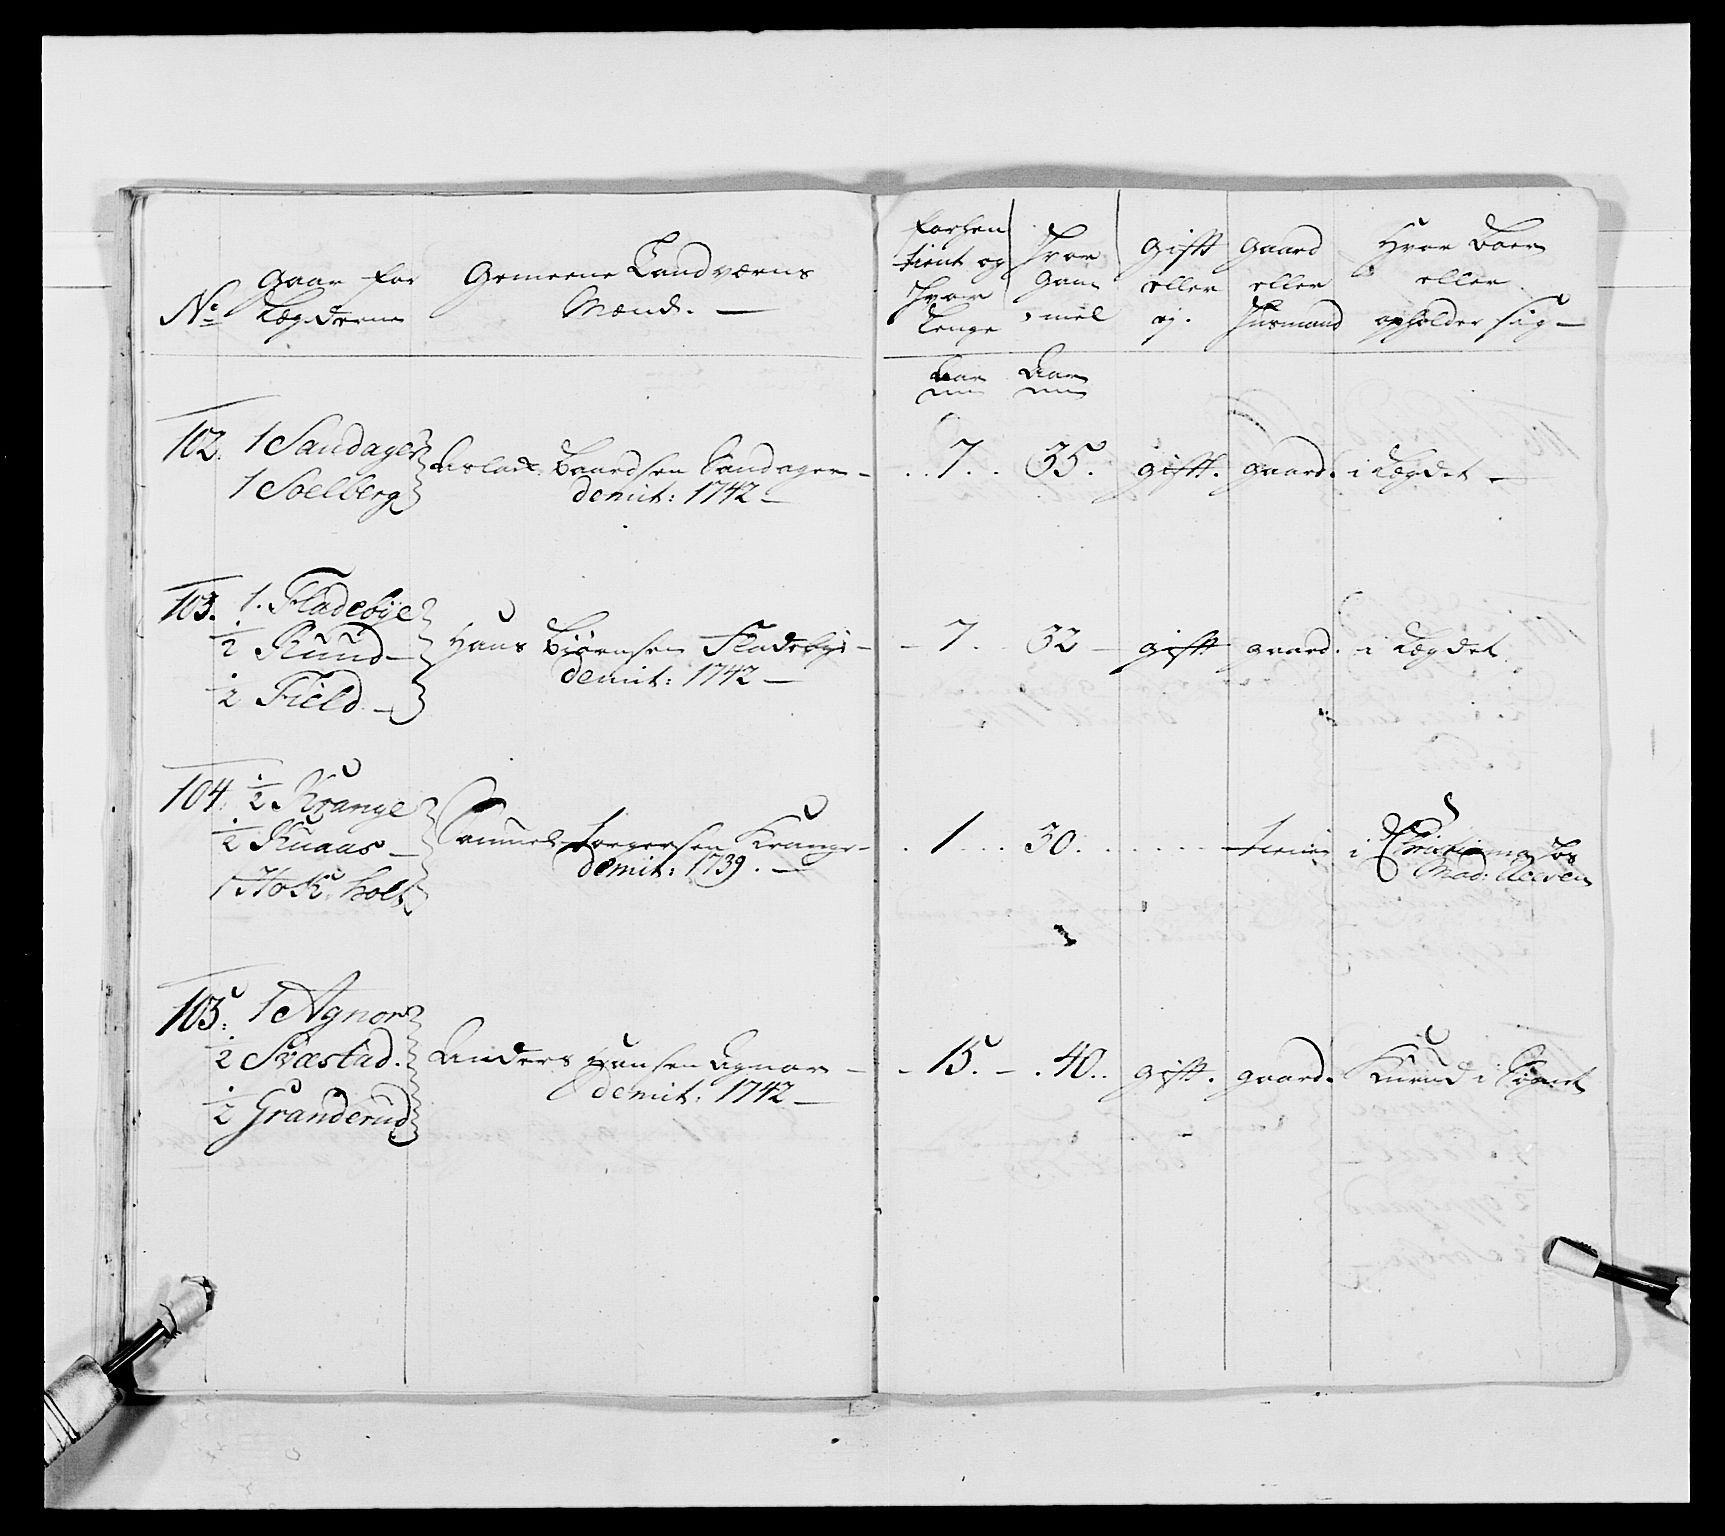 No
Gaar for
Lægderne
Gemeene Landværns
Mænd. —
forhen
tient og
hvor
lenge
Hvor
Gam
mel
gifft
eller
ej.
gaard
eller
Huusmand
Hvor boer
eller
opholder sig —
Aar
Aar
102. 1 Sandager
1 Soelberg
Baardsen Sandager —
demit: 1742 —
7. 35. gifft. gaard. i Lægdet —
103. 1. Fladebÿe
½ Rund —
½ Field —
Hans Biørnsen Fladebye —
demit: 1742 —
7. 32 — gifft gaard. i Lægdet
104. ½ Krange
½ Knaus —
1 Hok holt
Samuel Torgersen Krange —
demit: 1739. —
1 30. tiener i Christiania hos
Mad:
105. 1 Agnor
½ Svæstad.
½ Granderud
Anders Hansen Agnor —
demit: 1742 —
15. — 40. gifft. gaard. i